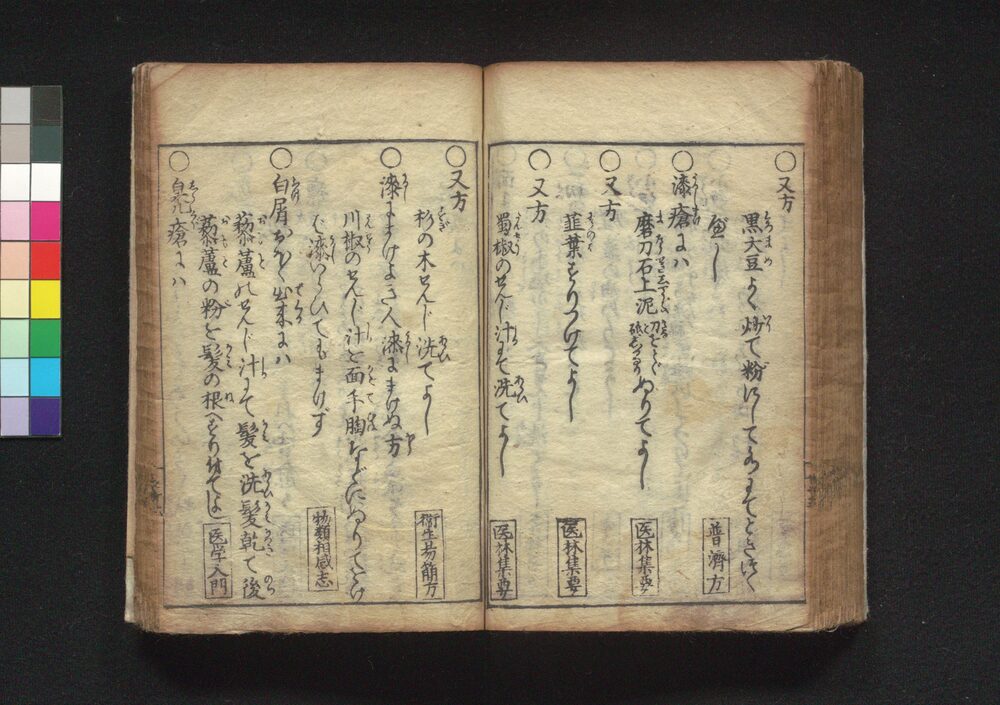 ○又方
黒大豆よく炒て粉にして水にてときつく
べし 普濟方
○漆瘡には
磨刀石上泥 刀をとぐ砥 ぬりてよし 医林集要
○又方
韮葉すりつけてよし 医林集要
○又方
蜀椒のせんじ汁にて洗てよし 医林集要
○又方
杉の木せんじ洗てよし 衛生易簡方
○漆にまけよき人漆にまけぬ方
川椒のせんじ汁を面手胸などにぬりて
ば漆いらひてもまけず 物類相感志
○白屑おほく出来るには
藜蘆のせんじ汁にて髪を洗髪乾て後
藜蘆の粉を髪の根へすり付てよし 医学入門
○白禿瘡には